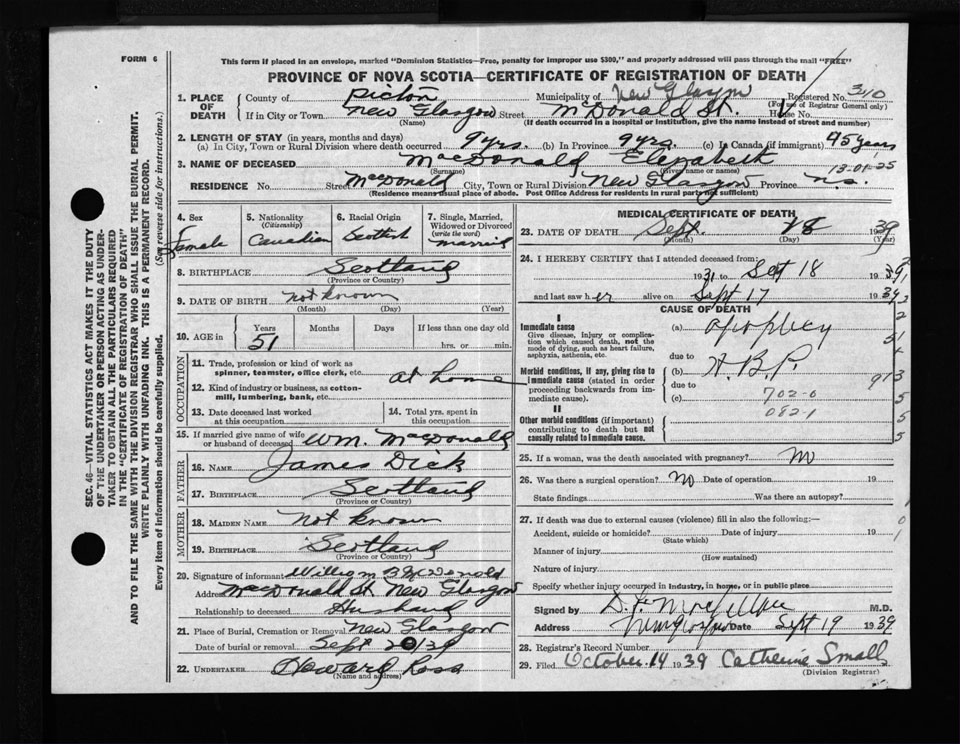 FORM 6
This form if placed in an envelope, marked "Dominion Statistics—Free, penalty for improper use $300," and properly addressed will pass through the mail "FREE"
PROVINCE OF NOVA SCOTIA—CERTIFICATE OF REGISTRATION OF DEATH
1. PLACE OF DEATH County of Pictou Municipality of New Glasgow Registered No. 310
(For use of Registrar General only)
If in City or Town New Glasgow Street McDonald St. House No.
(Name) (If death occurred in a hospital or institution, give the name instead of street and number)
2. LENGTH OF STAY (in years, months and days)
(a) In City, Town or Rural Division where death occurred 9 yrs. (b) In Province 9 yrs. (c) In Canada (if immigrant) 45 years
3. NAME OF DECEASED MacDonald Elizabeth
(Surname) (Given name or names)
13-01-25
RESIDENCE No. Street MacDonald City, Town or Rural Division New Glasgow Province N.S.
(Residence means usual place of abode. Post Office Address for residents in rural parts not sufficient)
4. Sex Female
5. Nationality (Citizenship) Canadian
6. Racial Origin Scottish
7. Single, Married, Widowed or Divorced (write the word) married
8. BIRTHPLACE Scotland
(Province or Country)
9. DATE OF BIRTH not known
(Month) (Day) (Year)
10. AGE in Years Months Days If less than one day old
51 hrs. or min.
OCCUPATION
11. Trade, profession or kind of work as spinner, teamster, office clerk, etc. at home
12. Kind of industry or business, as cotton-mill, lumbering, bank, etc.
13. Date deceased last worked at this occupation
14. Total yrs. spent in this occupation
15. If married give name of wife or husband of deceased Wm. MacDonald
FATHER
16. NAME James Dick
17. BIRTHPLACE Scotland
(Province or Country)
MOTHER
18. MAIDEN NAME not known
19. BIRTHPLACE Scotland
(Province or Country)
20. Signature of informant William
Address MacDonald St. New Glasgow
Relationship to deceased Husband
21. Place of Burial, Cremation or Removal New Glasgow
Date of burial or removal Sept 20/39
22. UNDERTAKER Howard Ross
(Name and address)
MEDICAL CERTIFICATE OF DEATH
23. DATE OF DEATH Sept. 18 1939
(Month) (Day) (Year)
24. I HEREBY CERTIFY that I attended deceased from:
1931 to Sept 18 1939
and last saw her alive on Sept 17 1939
CAUSE OF DEATH
I
Immediate cause
Give disease, injury or complication which caused death, not the mode of dying, such as heart failure, asphyxia, asthenia, etc.
(a) apoplexy
due to
Morbid conditions, if any, giving rise to immediate cause (stated in order proceeding backwards from immediate cause).
(b) H.B.P.
due to
(c) 702-0
082-1
913
II
Other morbid conditions (if important) contributing to death but not causally related to immediate cause.
25. If a woman, was the death associated with pregnancy? No
26. Was there a surgical operation? No Date of operation 19
State findings Was there an autopsy?
27. If death was due to external causes (violence) fill in also the following:—
Accident, suicide or homicide? Date of injury 19
(State which)
Manner of injury
(How sustained)
Nature of injury
Specify whether injury occurred in industry, in home, or in public place
Signed by M.D.
Address New Glasgow Date Sept 19 1939
28. Registrar's Record Number
29. Filed October 14 1939 Catherine Small
(Division Registrar)
SEC. 46—VITAL STATISTICS ACT MAKES IT THE DUTY
OF THE UNDERTAKER OR PERSON ACTING AS UNDERTAKER TO OBTAIN ALL THE PARTICULARS REQUIRED
IN THE "CERTIFICATE OF REGISTRATION OF DEATH"
AND TO FILE THE SAME WITH THE DIVISION REGISTRAR WHO SHALL ISSUE THE BURIAL PERMIT.
WRITE PLAINLY WITH UNFADING INK. THIS IS A PERMANENT RECORD.
Every item of information should be carefully supplied. (See reverse side for instructions.)